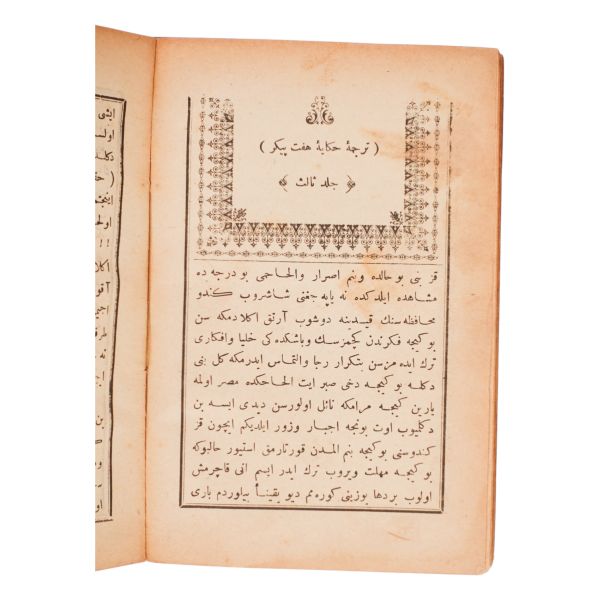 ( ترجمهٔ حكایهٔ هفت پیكر )
﴿ جلد ثالث ﴾
قز بنی بو حالده وبنم اصرار والحاحمی بو درجه ده
مشاهده ایلدكده نه یاپه جغنی شاشروب كندو
محافظه سنك قیدینه دوشوب آرتق اكلادمكه سن
بو كیجه فكرندن كچمزسك وباشكده كی خلیا وافكاری
ترك ایده مزسن بتكرار رجا والتماس ایدرمكه كل بنی
دكله بو كیجه دخی صبر ایت الحاحكده مصر اوله
یارین كیجه مرامكه نائل اولورسن دیدی ایسه بن
دكلمیوب اوت بونجه اجبار وزور ایلدیكم ایچون قز
كندوسنی بو كیجه بنم المدن قورتارمق استیور حالبوكه
بو كیجه مهلت ویروب ترك ایدر ایسم انی قاچرمش
اولوب بردها یوزینی كوره مم دیو یقیناً بیلوردم باری
ایشی
اولـ
دكلـ
!!
اكلا
آقو
نه
بن